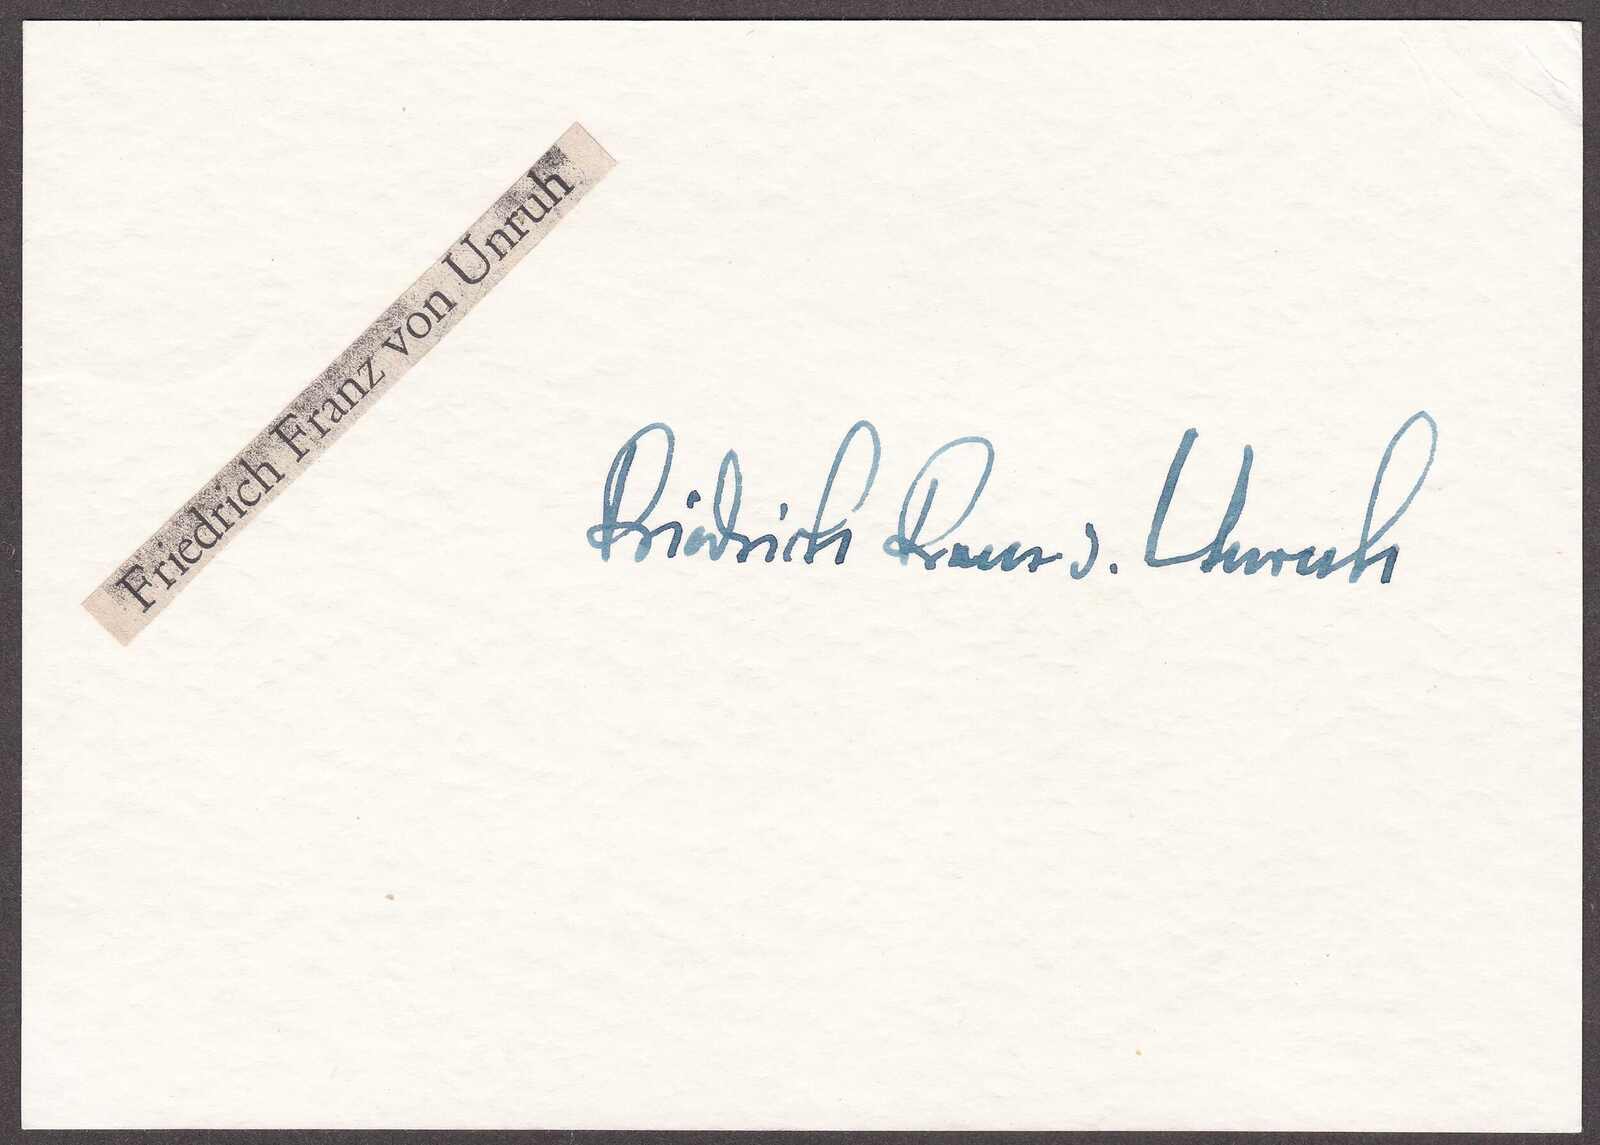 Friedrich Franz von Unruh
Friedrich Franz v. Unruh